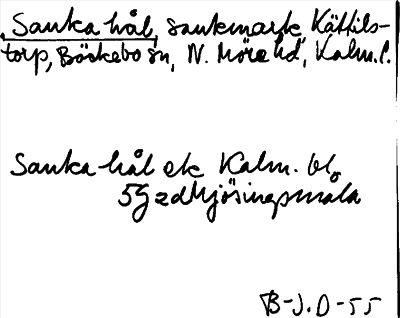 Sanka hål, sankmark, Kättils-
torp, Bäckebo sn, N. Möre hd, Kalm. l.
Sanka hål ek Kalm. bl.
5G zd Mjösingsmåla
B-J.D-55